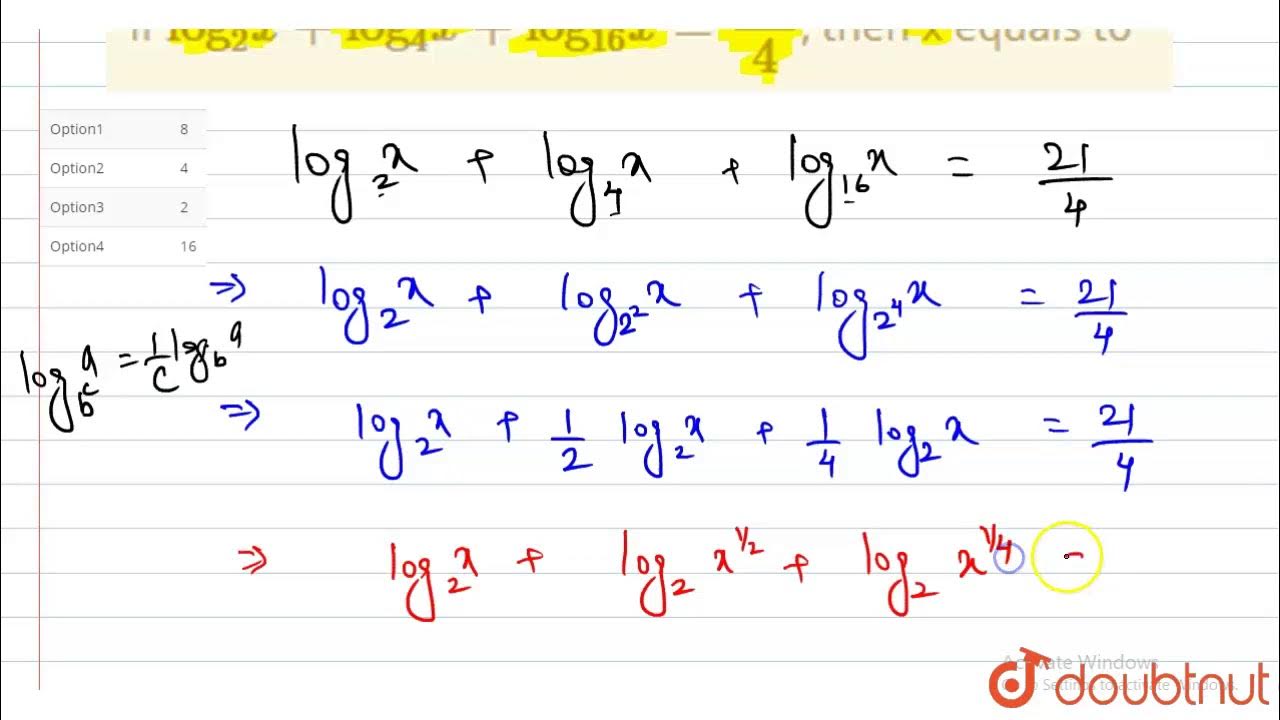 If log₂x + log₄x + log₁₆x = —/4, then x equals to
Option1 8
Option2 4
Option3 2
Option4 16
log₂x + log₄x + log₁₆x = 21/4
⇒ log₂x + log_{2²}x + log_{2⁴}x = 21/4
log_{b^c}a = 1/c log_b a
⇒ log₂x + 1/2 log₂x + 1/4 log₂x = 21/4
⇒ log₂x + log₂x^{1/2} + log₂x^{1/4} -
Activate Windows
Go to Settings to activate Windows.
doubtnut